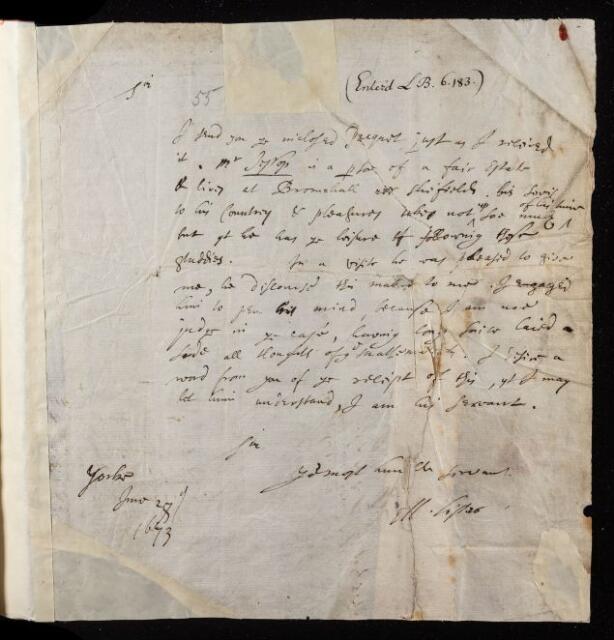 Sr
55
(Enterd L B. 6. 183.)
I send you ye inclosed Pacquet just as I received
it. Mr Jessop is a pson of a fair Estate
& lives at Bromehall nr Sheffield. his
to his Country & pleasures takes not up soe much of his time
but yt he has ye leisure of following these
studdies. In a visit he was pleased to give
me, he discoursd this matter to me. I engaged
him to pen his mind, because I am noe
judge in ye case, having long since laied a
side all thoughts of ye Mathematicks. I desire a
word from you of ye receipt of this, yt I may
let him understand, I am his servant.
Sir
Yr most humble servant
M. Lister
Yorke
June
1673